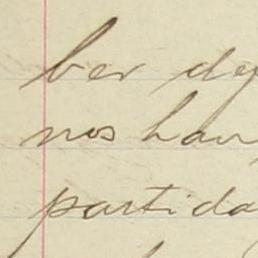 ber de
nos han
partida